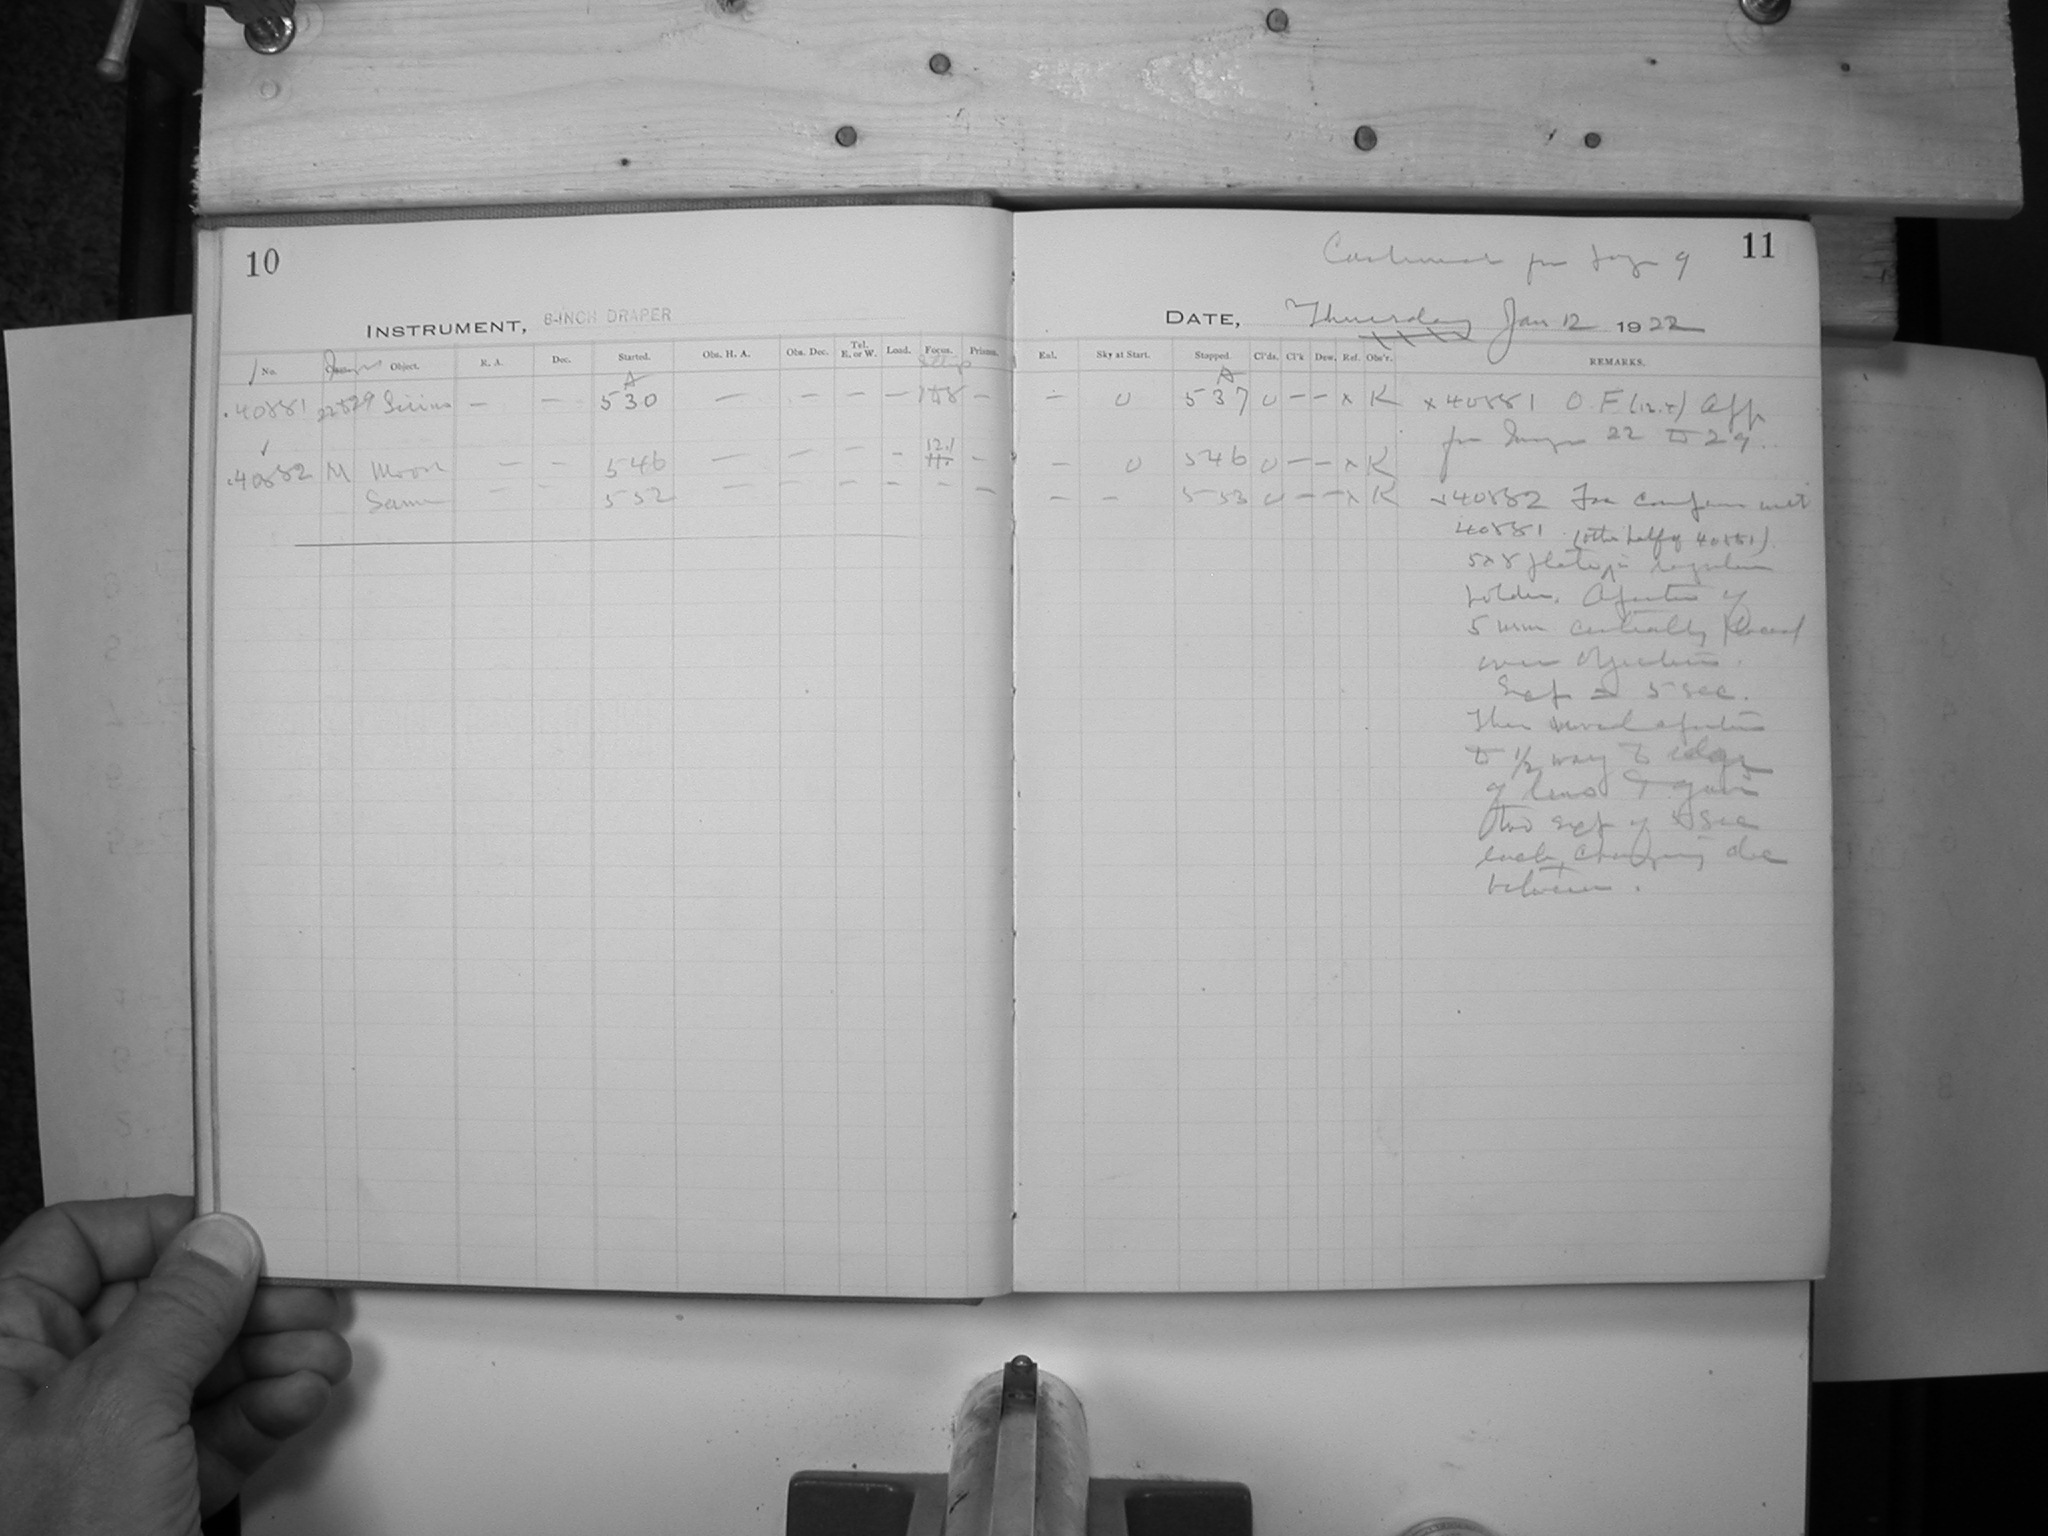 10
INSTRUMENT, 8-INCH DRAPER
No. Object. R. A. Dec. Started. Obs. H. A. Obs. Dec. Tel. E. or W. Load. Focus. Prisms.
A
.40881 Sirius — — 530 — — — — —
12.1
.40882 M Moon — — 546 — — — — —
Same — — 552 — — — — — —
11
Continued from Page 9
DATE, Thursday Jan 12 1922
Exl. Sky at Start. Stopped. Cl'ds. Cl'k Dew. Ref. Obs'r. REMARKS.
A
— 0 537 0 — — x K x 40881 O.F. (12.2) App
from Image 22 to 29.
— 0 546 0 — — x K
— — 553 0 — — x K x 40882 For comparison with
40881 (other half of 40881)
5x8 plate in regular
holder. Aperture of
5 mm centrally placed
over objective.
Exp = 5 sec.
Then moved aperture
to 1/2 way to edge
of lens & gave
two exp of sec
each, changing dec
between.